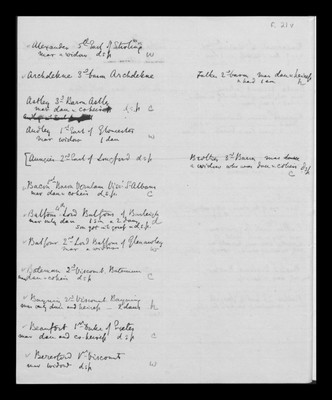 Alexander 5th Earl of Stirling
mar widow dsp W
Archdekne 3rd baron Archdekne
Father 2nd baron mar dau & heiress
& had 1 son h
Astley 3rd Baron Astley
mar dau & coheir dsp C
Audley 1st Earl of Gloucester
mar widow 1 dau W
2nd Earl of Longford dsp
Brother 3rd Baron mar
& widow who was dau & coheir dsp
C
Bacon 1st Baron Verulam Visc: St Albans
mar dau & coheir dsp. C
Balfour 4th Lord Balfour of Burleigh
mar only dau 1 son & 2 daus h
Son got w[?] dsp
Balfour 2nd Lord Balfour of Glenawley
mar a widow W
Bateman 2nd Viscount Bateman
mar dau & coheir dsp C
Bayning 2nd Viscount Bayning
mar only dau and heiress 2 daus h
Beaufort 1st Duke of Exeter
mar dau and co-heiress dsp C
Beresford Vt Viscount
mar widow dsp W